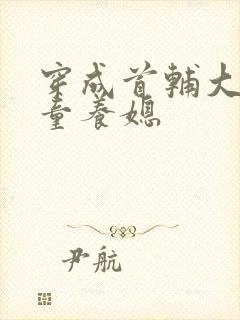 穿成首辅大
童养媳
尹航